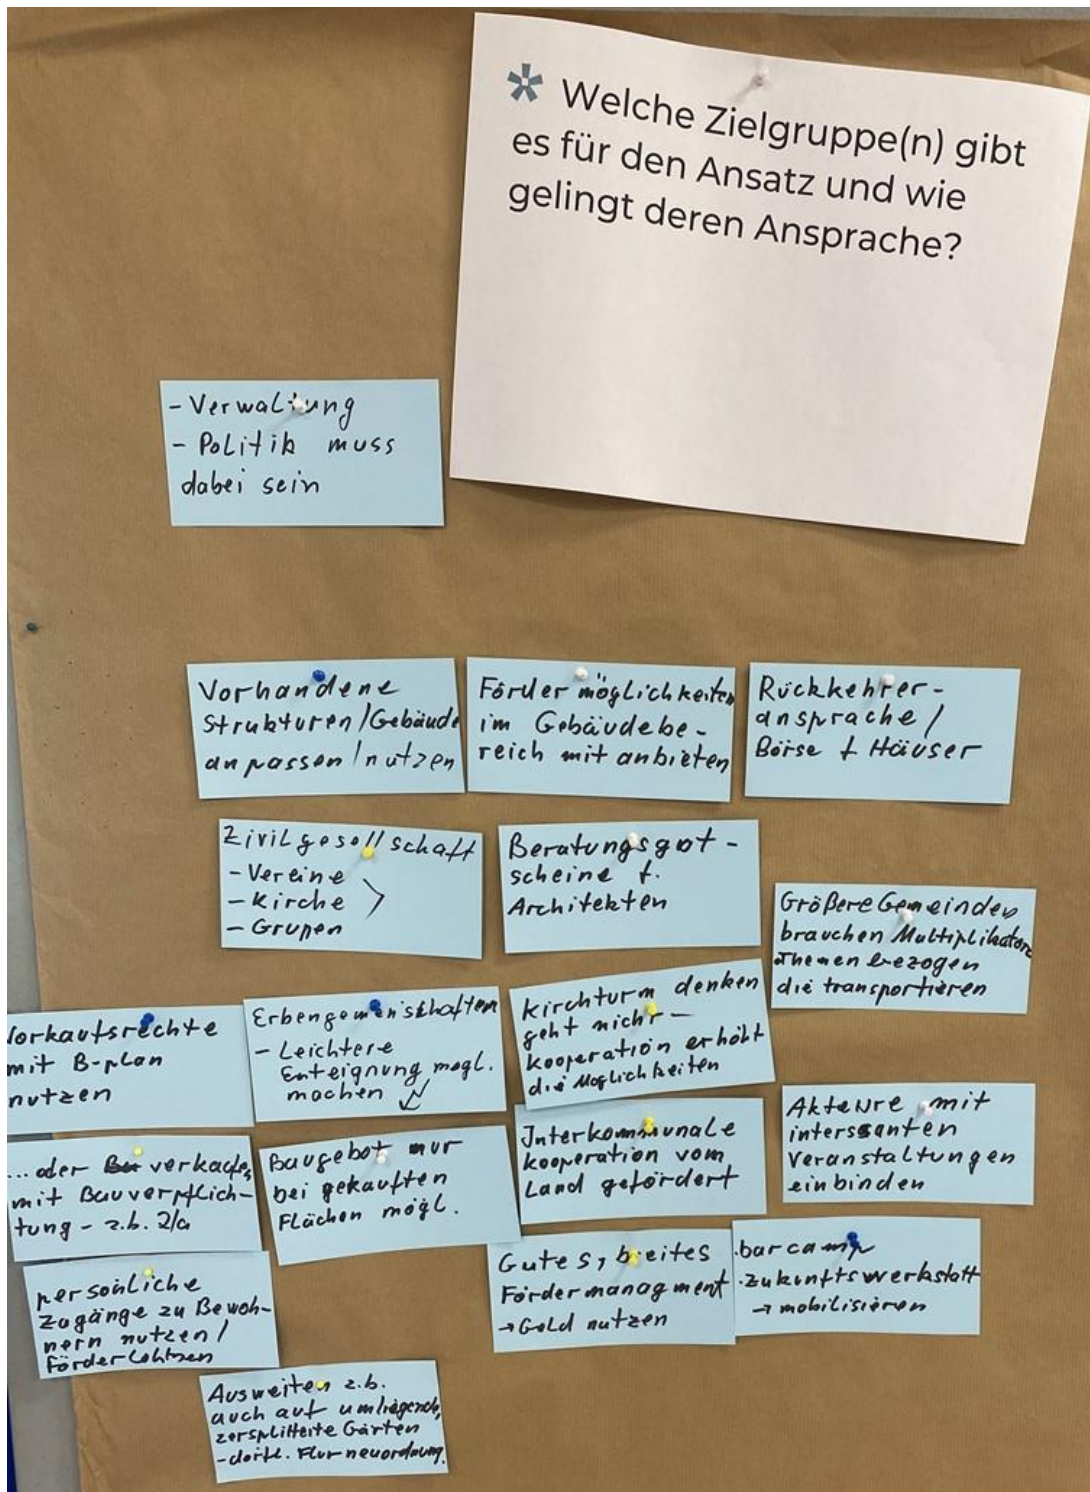 * Welche Zielgruppe(n) gibt
es für den Ansatz und wie
gelingt deren Ansprache?
- Verwaltung
- Politik muss
dabei sein
Vorhandene
Strukturen/Gebäude
anpassen/nutzen
Fördermöglichkeiten
im Gebäudebe-
reich mit anbieten
Rückkehrer-
ansprache/
Börse f Häuser
Zivilgesellschaft
- Vereine
- Kirche
- Grupen
Beratungsgut-
scheine f.
Architekten
Größere Gemeinden
brauchen Multiplikatoren
Themen bezogen
die transportieren
Vorkaufsrechte
mit B-plan
nutzen
Erbengemeinschaften
- Leichtere
Enteignung mögl.
machen
Kirchturm denken
geht nicht -
Kooperation erhöht
die Möglichkeiten
Akteure mit
interssanten
Veranstaltungen
einbinden
...oder verkaufen
mit Bauverpflich-
tung - z.b. 2/a
Baugebot nur
bei gekauften
Flächen mögl.
Interkommunale
Kooperation vom
Land gefördert
persönliche
Zugänge zu Bewoh-
nern nutzen/
Förder
Gutes, breites
Fördermanagment
→ Geld nutzen
·barcamp
·Zukunftswerkstatt
→ mobilisieren
Ausweiten z.b.
auch auf umliegende,
zersplitterte Gärten
- dörfl. Flurneuordnung.